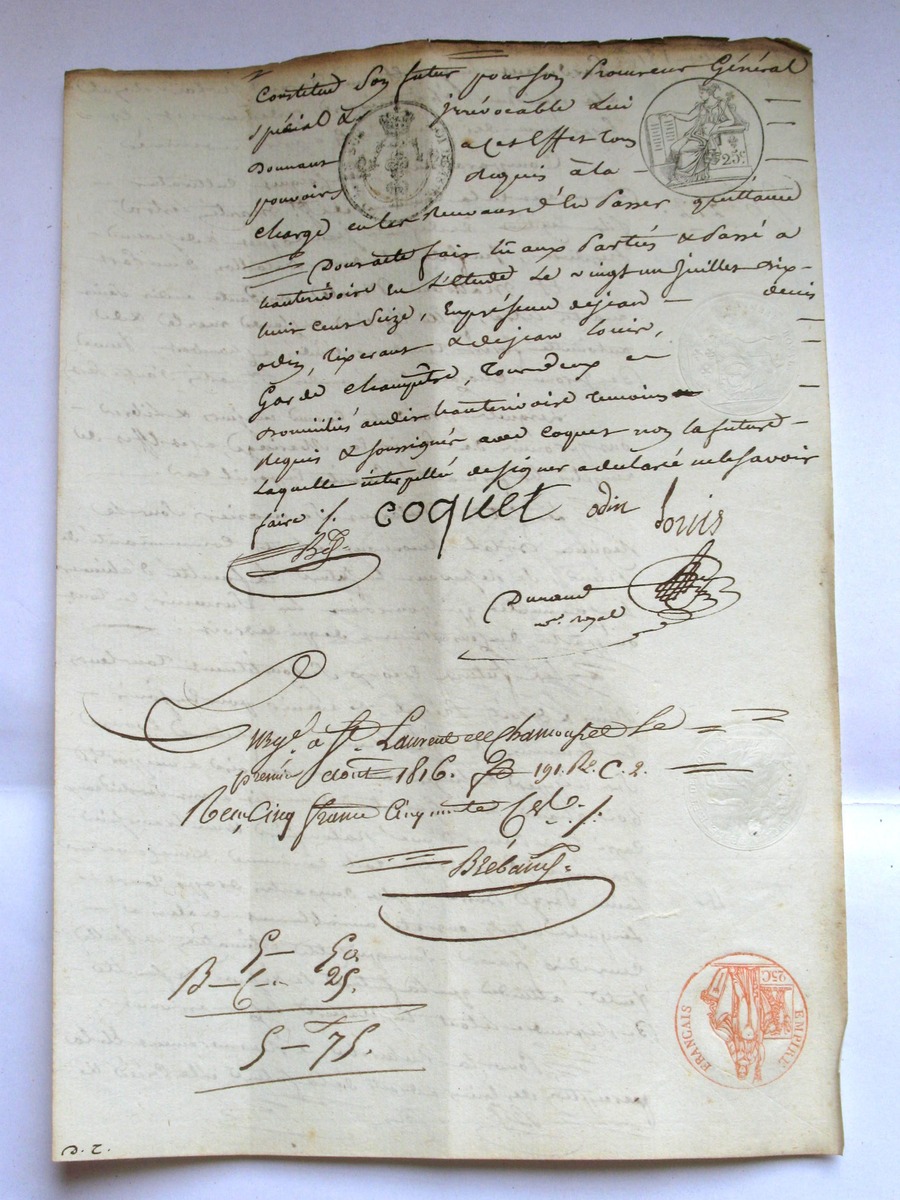 Constitué Son futur pour Son Procureur Général
spécial & irrévocable Lui
Donnant a Cet Effet tous
pouvoirs Requis à la
charge en les Recevant d'En Passer quittance
Dont acte fait lû aux Parties & Passé a
hauterivoire en L'Etude Le vingt un Juillet dix-
huit cent Seize, En présence de jean denis
odin, & dejean Louis,
Garde Champêtre, Tous Deux
Domiciliés audit hauterivoire temoins
Requis & soussignés avec coquet non la future
Laquelle interpellée de signer a déclaré ne le Savoir
faire ./.
coquet odin Louis
Durand
nre. royal
25c.
Enregé. a St. Laurent de Chamousset Le
premier aout 1816. fo 191. Ro. C. 2.
Reçu Cinq francs Cinquante Cest. ./.
Brébant
5 — 50
B — C — 25.
5 — 75.
EMPIRE FRANÇAIS
25C
D. T.